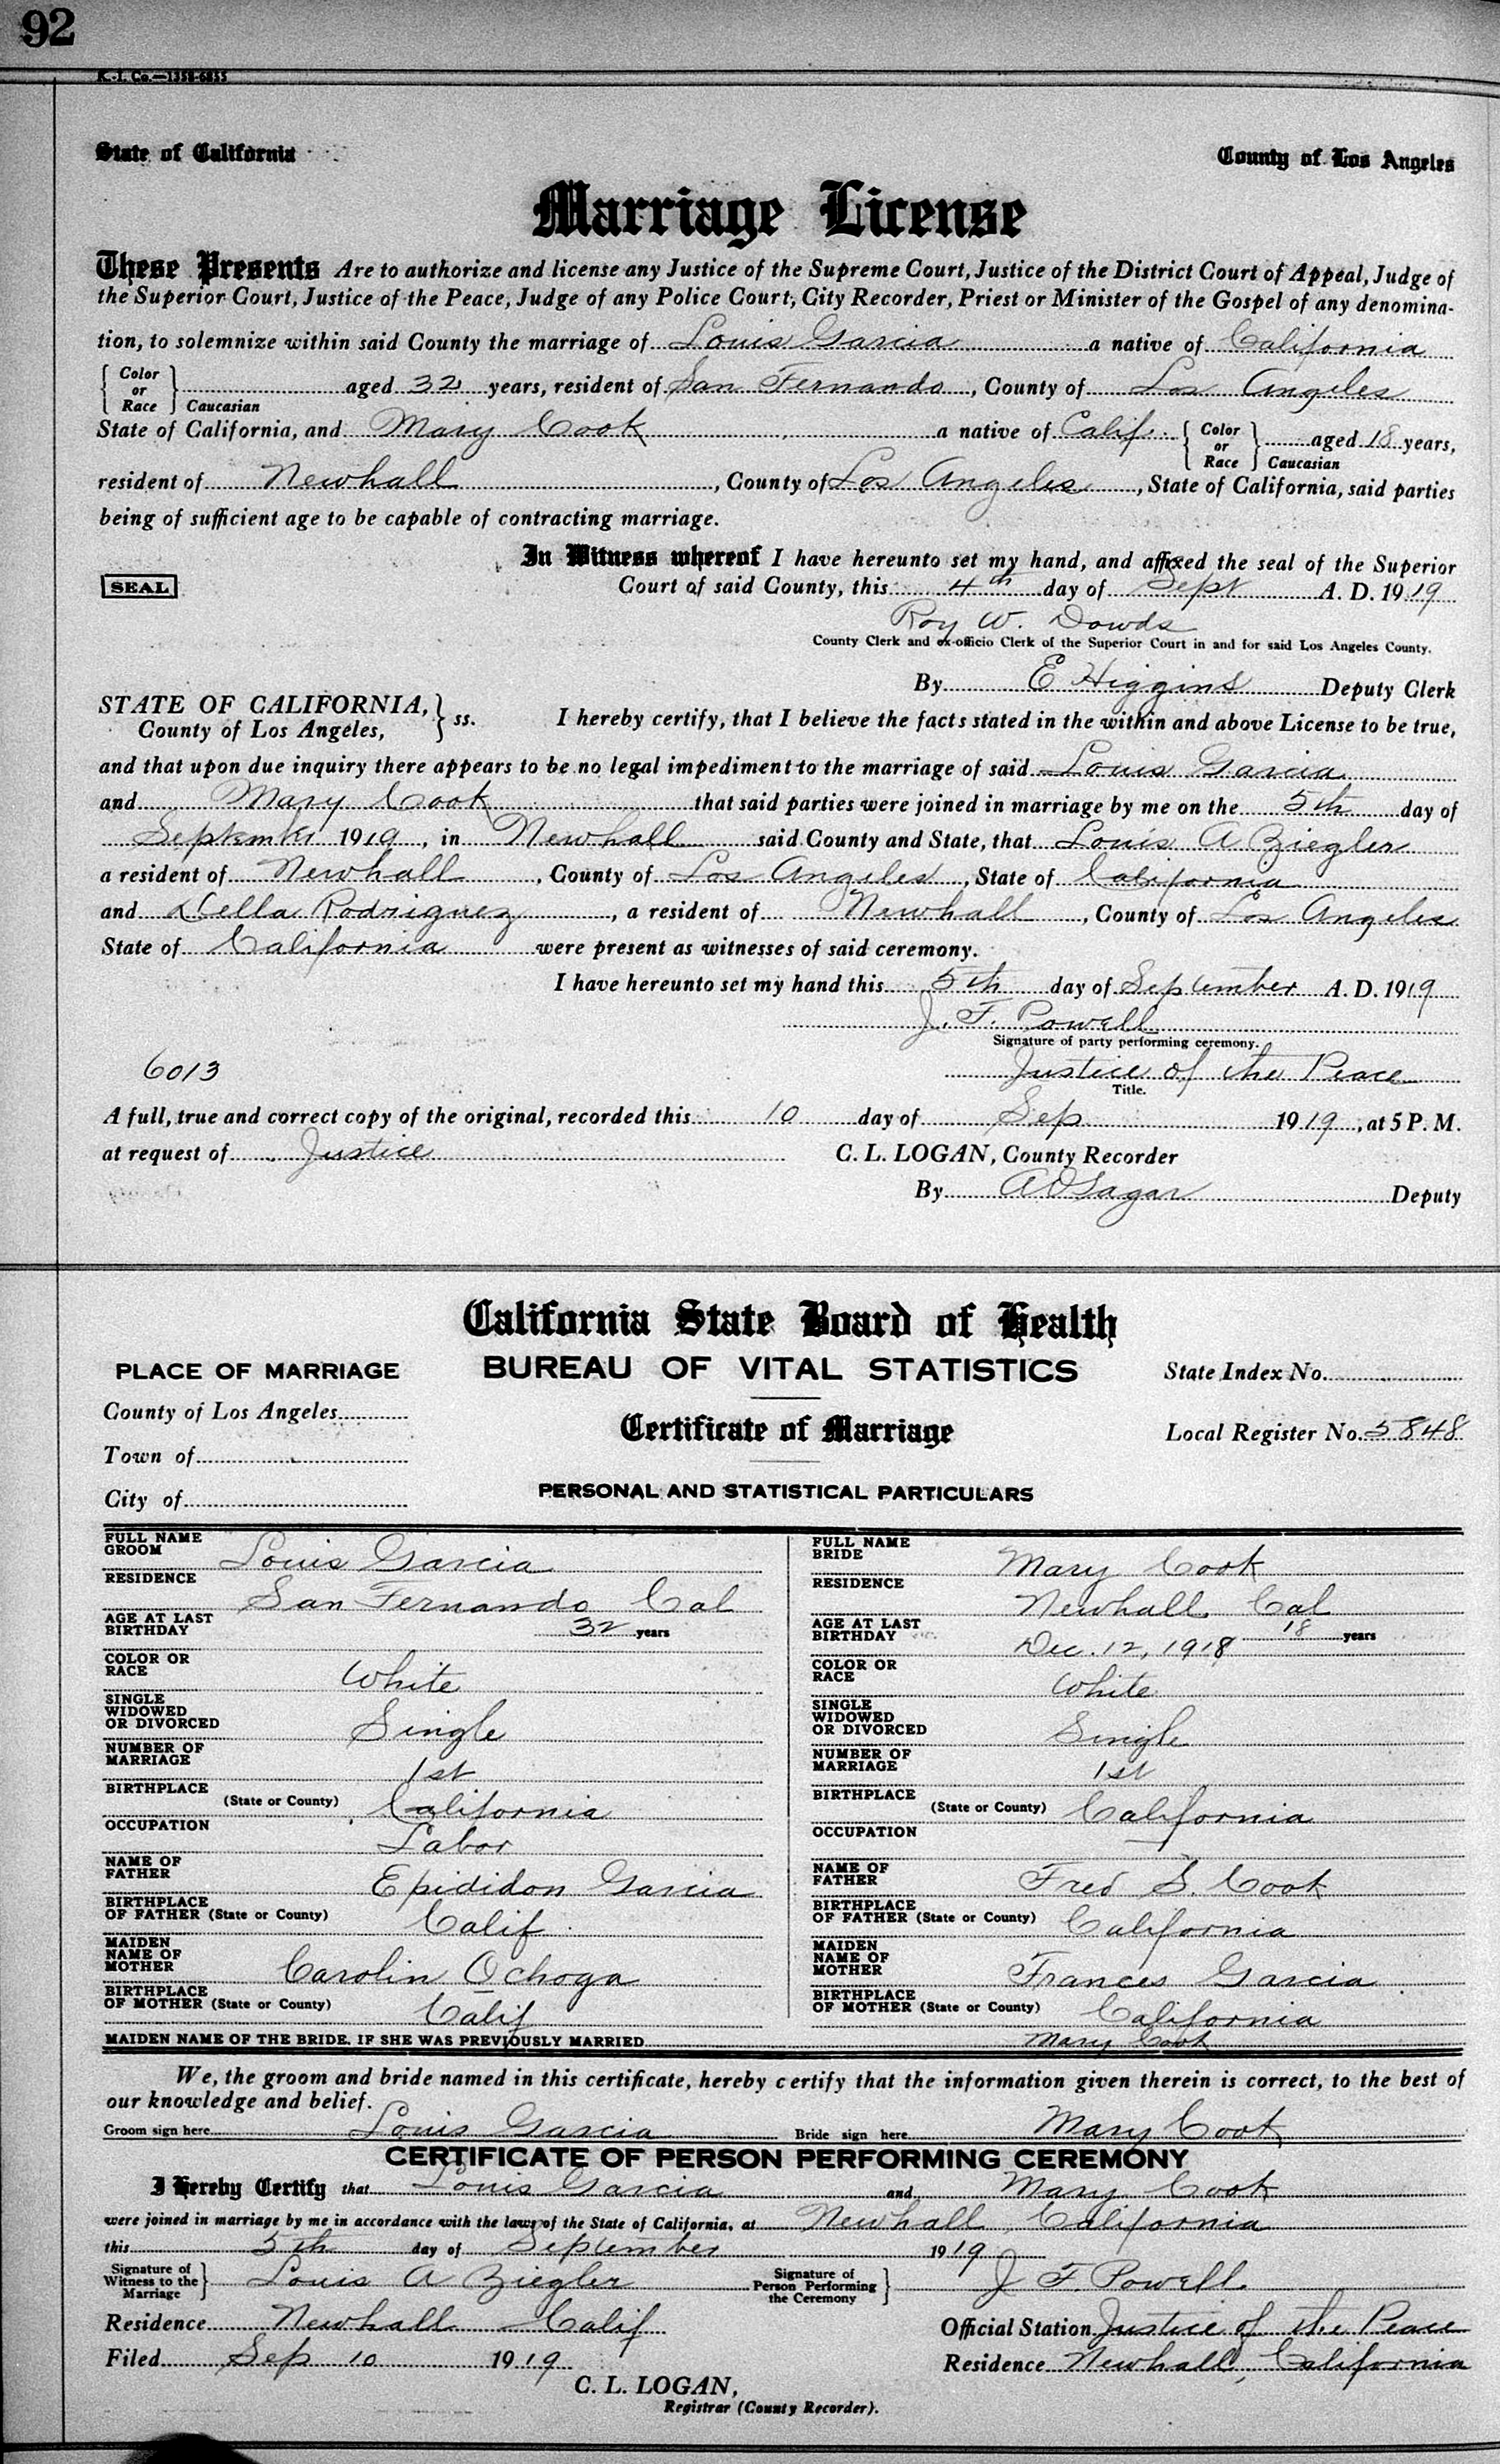 92
K.-I. Co.—1358-6855
State of California County of Los Angeles
Marriage License
These Presents Are to authorize and license any Justice of the Supreme Court, Justice of the District Court of Appeal, Judge of
the Superior Court, Justice of the Peace, Judge of any Police Court, City Recorder, Priest or Minister of the Gospel of any denomina-
tion, to solemnize within said County the marriage of Louis Garcia a native of California
Color or Race Caucasian aged 32 years, resident of San Fernando, County of Los Angeles
State of California, and Mary Cook a native of Calif. Color or Race Caucasian aged 18 years,
resident of Newhall, County of Los Angeles, State of California, said parties
being of sufficient age to be capable of contracting marriage.
In Witness whereof I have hereunto set my hand, and affixed the seal of the Superior
SEAL Court of said County, this 4th day of Sept A. D. 1919
Roy W. Dowds
County Clerk and ex-officio Clerk of the Superior Court in and for said Los Angeles County.
By E Higgins Deputy Clerk
STATE OF CALIFORNIA, County of Los Angeles, } ss. I hereby certify, that I believe the facts stated in the within and above License to be true,
and that upon due inquiry there appears to be no legal impediment to the marriage of said Louis Garcia
and Mary Cook that said parties were joined in marriage by me on the 5th day of
September 1919, in Newhall said County and State, that Louis A Ziegler
a resident of Newhall, County of Los Angeles, State of California
and Della Rodriguez, a resident of Newhall, County of Los Angeles
State of California were present as witnesses of said ceremony.
I have hereunto set my hand this 5th day of September A. D. 1919
J. F. Powell
Signature of party performing ceremony.
6013 Justice of the Peace
Title.
A full, true and correct copy of the original, recorded this 10 day of Sep 1919, at 5 P. M.
at request of Justice C. L. LOGAN, County Recorder
By Deputy
California State Board of Health
PLACE OF MARRIAGE BUREAU OF VITAL STATISTICS State Index No.
County of Los Angeles
Certificate of Marriage Local Register No. 5848
Town of
City of PERSONAL AND STATISTICAL PARTICULARS
FULL NAME GROOM Louis Garcia FULL NAME BRIDE Mary Cook
RESIDENCE San Fernando Cal RESIDENCE Newhall Cal
AGE AT LAST BIRTHDAY 32 years AGE AT LAST BIRTHDAY Dec. 12, 1918 18 years
COLOR OR RACE White COLOR OR RACE White
SINGLE WIDOWED OR DIVORCED Single SINGLE WIDOWED OR DIVORCED Single
NUMBER OF MARRIAGE 1st NUMBER OF MARRIAGE 1st
BIRTHPLACE (State or County) California BIRTHPLACE (State or County) California
OCCUPATION Labor OCCUPATION
NAME OF FATHER Epididon Garcia NAME OF FATHER Fred S. Cook
BIRTHPLACE OF FATHER (State or County) Calif BIRTHPLACE OF FATHER (State or County) California
MAIDEN NAME OF MOTHER Carolin Ochoga MAIDEN NAME OF MOTHER Frances Garcia
BIRTHPLACE OF MOTHER (State or County) Calif BIRTHPLACE OF MOTHER (State or County) California
MAIDEN NAME OF THE BRIDE, IF SHE WAS PREVIOUSLY MARRIED Mary Cook
We, the groom and bride named in this certificate, hereby certify that the information given therein is correct, to the best of
our knowledge and belief.
Groom sign here Louis Garcia Bride sign here Mary Cook
CERTIFICATE OF PERSON PERFORMING CEREMONY
I Hereby Certify that Louis Garcia and Mary Cook
were joined in marriage by me in accordance with the laws of the State of California, at Newhall, California
this 5th day of September 1919
Signature of Witness to the Marriage Louis A Ziegler Signature of Person Performing the Ceremony J F. Powell
Residence Newhall Calif Official Station Justice of the Peace
Filed Sep 10 1919 Residence Newhall, California
C. L. LOGAN,
Registrar (County Recorder).